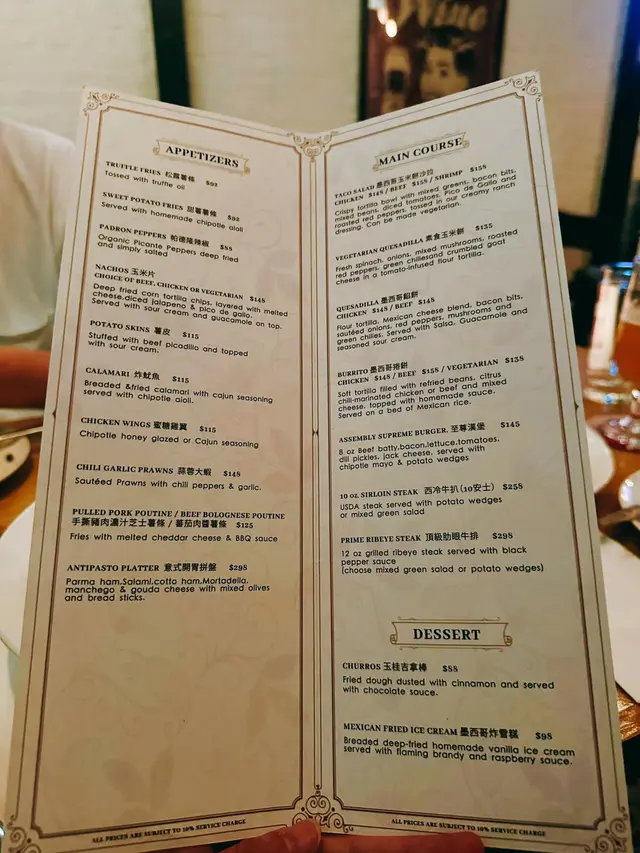 Wine
APPETIZERS
TRUFFLE FRIES 松露薯條 $92
Tossed with truffle oil
SWEET POTATO FRIES 甜薯薯條 $95
Served with homemade chipotle aioli
PADRON PEPPERS 帕德隆辣椒 $88
Organic Picante Peppers deep fried
and simply salted
NACHOS 玉米片
CHOICE OF BEEF, CHICKEN OR VEGETARIAN $148
Deep fried corn tortilla chips, layered with melted
cheese,diced jalapeno & pico de gallo.
Served with sour cream and guacomole on top.
POTATO SKINS 薯皮 $115
Stuffed with beef picadillo and topped
with sour cream.
CALAMARI 炸魷魚 $115
Breaded &fried calamari with cajun seasoning
served with chipotle aioli.
CHICKEN WINGS 蜜糖雞翼 $115
Chipotle honey glazed or Cajun seasoning
CHILI GARLIC PRAWNS 蒜蓉大蝦 $148
Sautéed Prawns with chili peppers & garlic.
PULLED PORK POUTINE / BEEF BOLOGNESE POUTINE
手撕豬肉濃汁芝士薯條 / 蕃茄肉醬薯條 $125
Fries with melted cheddar cheese & BBQ sauce
ANTIPASTO PLATTER 意式開胃拼盤 $298
Parma ham,Salami,cotto ham,Mortadella,
manchego & gouda cheese with mixed olives
and bread sticks.
ALL PRICES ARE SUBJECT TO 10% SERVICE CHARGE
MAIN COURSE
TACO SALAD 墨西哥玉米餅沙拉
CHICKEN $148 / BEEF $158 / SHRIMP $158
Crispy tortilla bowl with mixed greens, bacon bits,
mixed beans, diced tomatoes, Pico de Gallo and
roasted red peppers, tossed in our creamy ranch
dressing. Can be made vegetarian.
VEGETARIAN QUESADILLA 素食玉米餅 $135
Fresh spinach, onions, mixed mushrooms, roasted
red peppers, green chiliesand crumbled goat
cheese in a tomato-infused flour tortilla.
QUESADILLA 墨西哥餡餅
CHICKEN $148 / BEEF $148
Flour tortilla, Mexican cheese blend, bacon bits,
sautéed onions, red peppers, mushrooms and
green chilies. Served with Salsa, Guacamole and
seasoned sour cream.
BURRITO 墨西哥捲餅
CHICKEN $148 / BEEF $158 / VEGETARIAN $138
Soft tortilla filled with refried beans, citrus
chili-marinated chicken or beef and mixed
cheese, topped with homemade sauce.
Served on a bed of Mexican rice.
ASSEMBLY SUPREME BURGER. 至尊漢堡 $145
8 oz Beef batty,bacon,lettuce,tomatoes,
dill pickles, jack cheese, served with
chipotle mayo & potato wedges
10 OZ SIRLOIN STEAK 西冷牛扒(10安士) $258
USDA steak served with potato wedges
or mixed green salad
PRIME RIBEYE STEAK 頂級肋眼牛排 $298
12 oz grilled ribeye steak served with black
pepper sauce
(choose mixed green salad or potato wedges)
DESSERT
CHURROS 玉桂吉拿棒 $88
Fried dough dusted with cinnamon and served
with chocolate sauce.
MEXICAN FRIED ICE CREAM 墨西哥炸雪糕 $98
Breaded deep-fried homemade vanilla ice cream
served with flaming brandy and raspberry sauce.
ALL PRICES ARE SUBJECT TO 10% SERVICE CHARGE